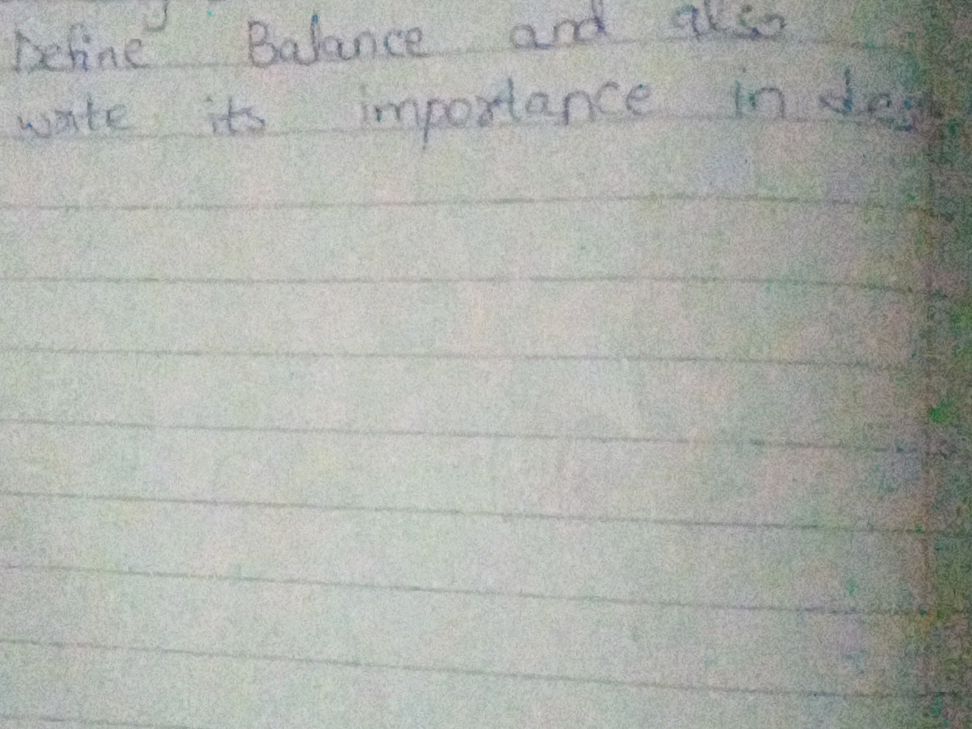 Define Balance and also
write its importance in